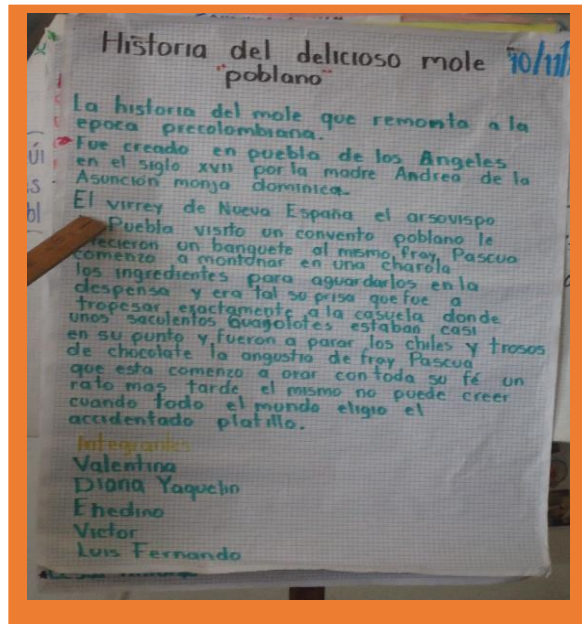 Historia del delicioso mole 10/11/
"poblano"
La historia del mole que remonta a la
epoca precolombiana.
Fue creado en puebla de los Angeles
en el siglo xvii por la madre Andrea de la
Asunción monja dominica.
El virrey de Nueva España el arsovispo
Puebla visito un convento poblano le
ofrecieron un banquete al mismo fray Pascua
comenzo a montonar en una charola
los ingredientes para aguardarlos en la
despensa y era tal su prisa que fue a
tropesar exactamente a la casuela donde
unos saculentos guagolotes estaban casi
en su punto y fueron a parar los chiles y trosos
de chocolate la angustia de fray Pascua
que esta comenzo a orar con toda su fé un
rato mas tarde el mismo no puede creer
cuando todo el mundo eligio el
accidentado platillo.
Integrantes
Valentina
Diana Yaquelin
Ehedino
Victor
Luis Fernando